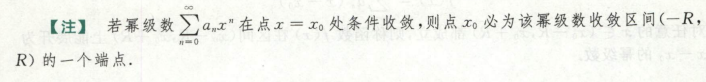 【注】 若幂级数 $\sum_{n=0}^{\infty} a_n x^n$ 在点 $x = x_0$ 处条件收敛,则点 $x_0$ 必为该幂级数收敛区间 $(-R,$
$R)$ 的一个端点.